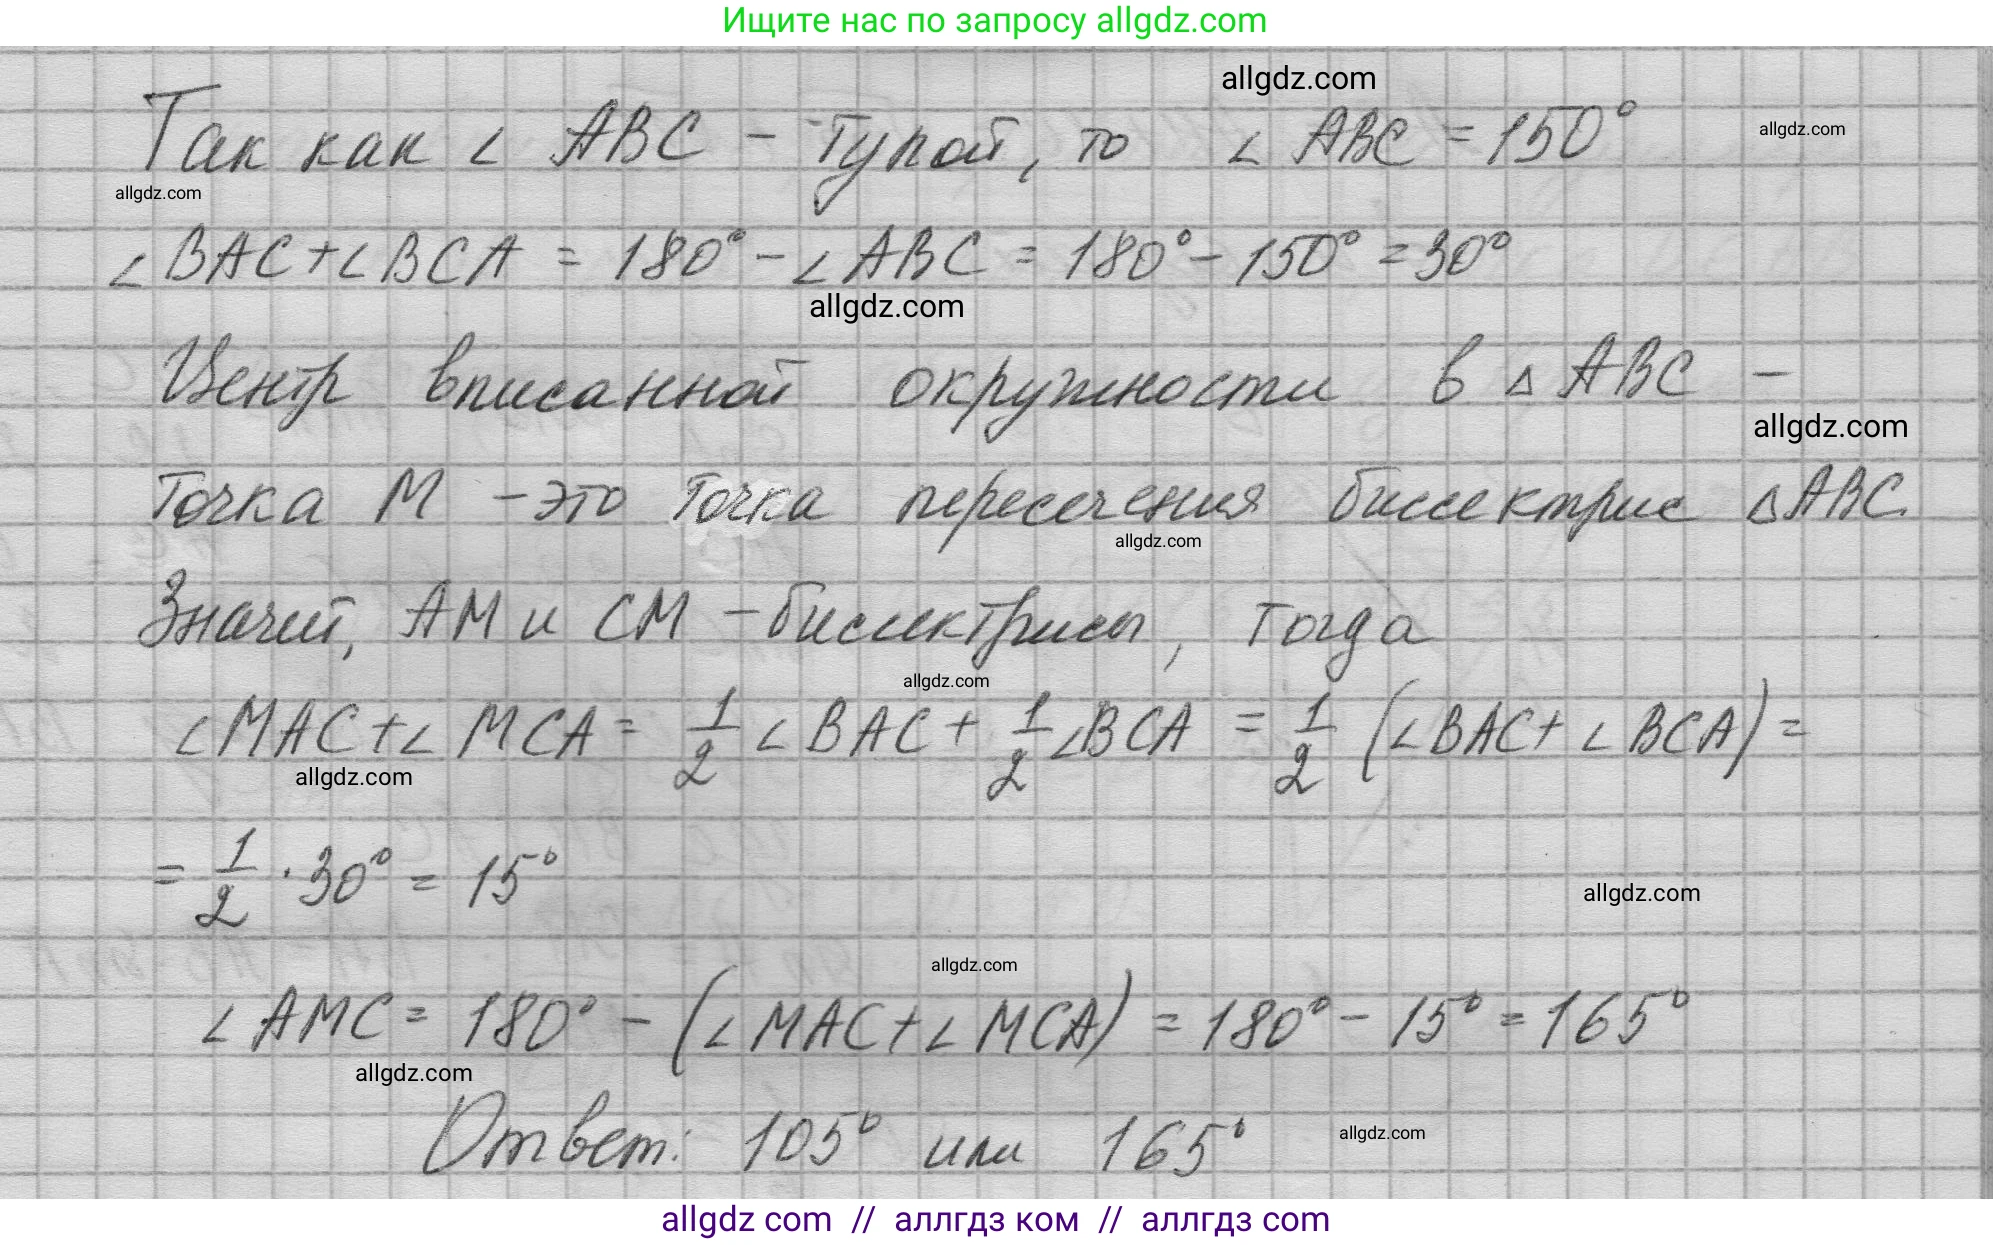 Ищите нас по запросу allgdz.com
allgdz.com
Так как ∠ ABC - тупой, то ∠ ABC = 150°
allgdz.com
allgdz.com
∠BAC+∠BCA = 180° - ∠ABC = 180° - 150° = 30°
allgdz.com
Центр вписанной окружности в △ ABC -
allgdz.com
точка M - это точка пересечения биссектрис △ABC.
allgdz.com
Значит, AM и CM - биссектрисы, тогда
allgdz.com
∠MAC+∠MCA = 1/2 ∠BAC + 1/2 ∠BCA = 1/2 (∠BAC+∠BCA) =
allgdz.com
= 1/2 · 30° = 15°
allgdz.com
allgdz.com
∠AMC = 180° - (∠MAC+∠MCA) = 180° - 15° = 165°
allgdz.com
Ответ: 105° или 165°
allgdz.com
allgdz com // аллгдз ком // аллгдз com